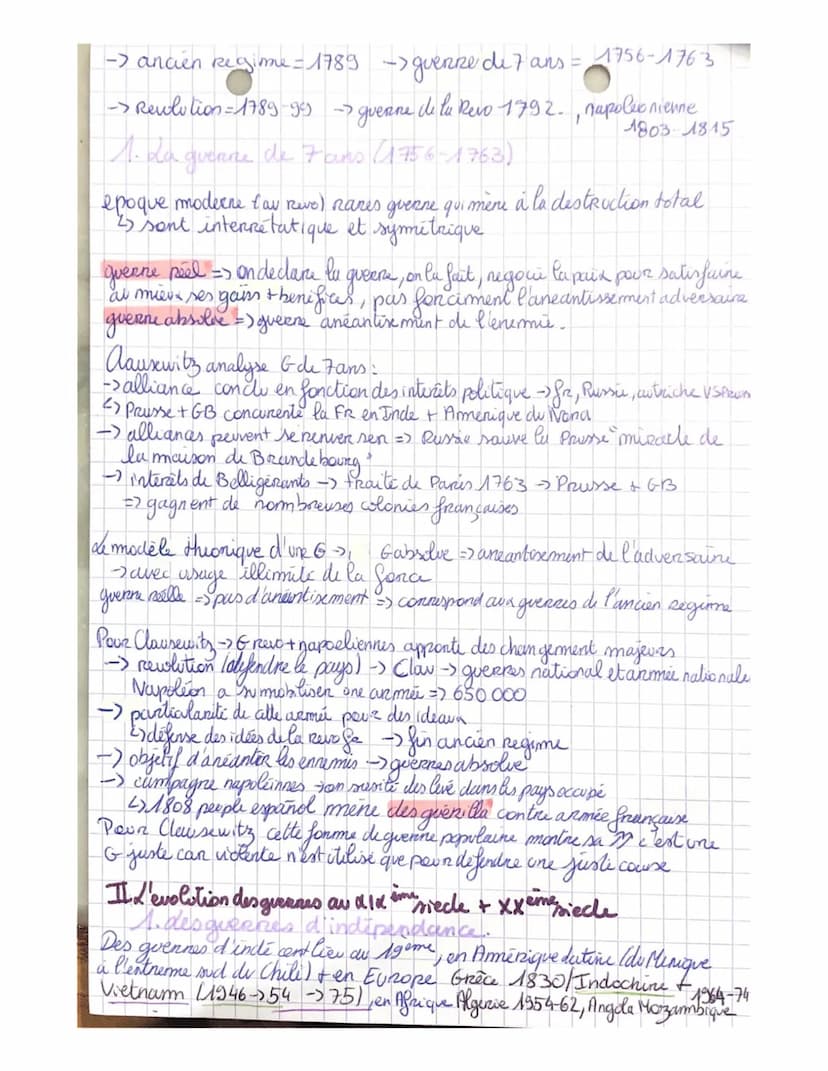 -> ancien regime = 1789 -> guerre de 7 ans = 1756-1763
-> Revolution = 1789-99 -> guerre de la Revo 1792. , napoleonienne
1803-1815
1. La guerre de 7 ans (1756-1763)
epoque moderne (av revo) rares guerre qui mène à la destruction total
↳ sont interrétatique et symétrique
guerre réel => on declare la guerre, on la fait, negocie la paix pour satisfaire
au mieux ses gains + benifices, pas forciment l'aneantissement adversaire
guerre absolve => guerre anéantisement de l'enemie.
Clausewitz analyse G de 7 ans :
-> alliance conclu en fonction des interêts politique -> fr, Russie, autriche VS Prusse
↳ Prusse + GB concurente la FR en Inde + Amerique du Nord
-> alliances peuvent se renverser => Russie sauve la Prusse "miracle de
la maison de Brandebourg"
-> interêts de Belligérants -> traité de Paris 1763 -> Prusse + GB
=> gagnent de nombreuses colonies françaises
Le modèle theorique d'une G -> G absolve => aneantisement de l'adversaire
-> avec usage illimité de la force
guerre réelle => pas d'anéantisement => correspond aux guerres de l'ancien regime
Pour Clausewitz -> G revo + napoeliennes apporte des changement majeurs
-> revolution (defendre le pays) -> Clau -> guerres national et armée nationale
Napoléon a su mobiliser une armée => 650 000
-> particularité de cette armé pour des ideaux
↳ défense des idées de la revo fr -> fin ancien regime
-> objectif d'anéantir les ennemis -> guerres absolve
-> campagne napoléinnes -> on susité des levé dans les pays occupé
↳ 1808 peuple español mène des guérilla contre armée française
Pour Clausewitz cette forme de guerre populaire montre sa ↗↗ c'est une
G juste car violente n'est utilisé que pour défendre une juste cause
II. L'evolution des guerres au XIX ème siecle + XX ème siecle
1. des guerres d'indépendance.
Des guerres d'indé ont lieu au 19 eme, en Amérique latine (du Mexique
à l'extreme sud du Chili) + en Europe Grèce 1830 / Indochine +
Vietnam (1946 -> 54 -> 75), en Afrique Algerie 1954-62, Angola Mozambique 1964-74